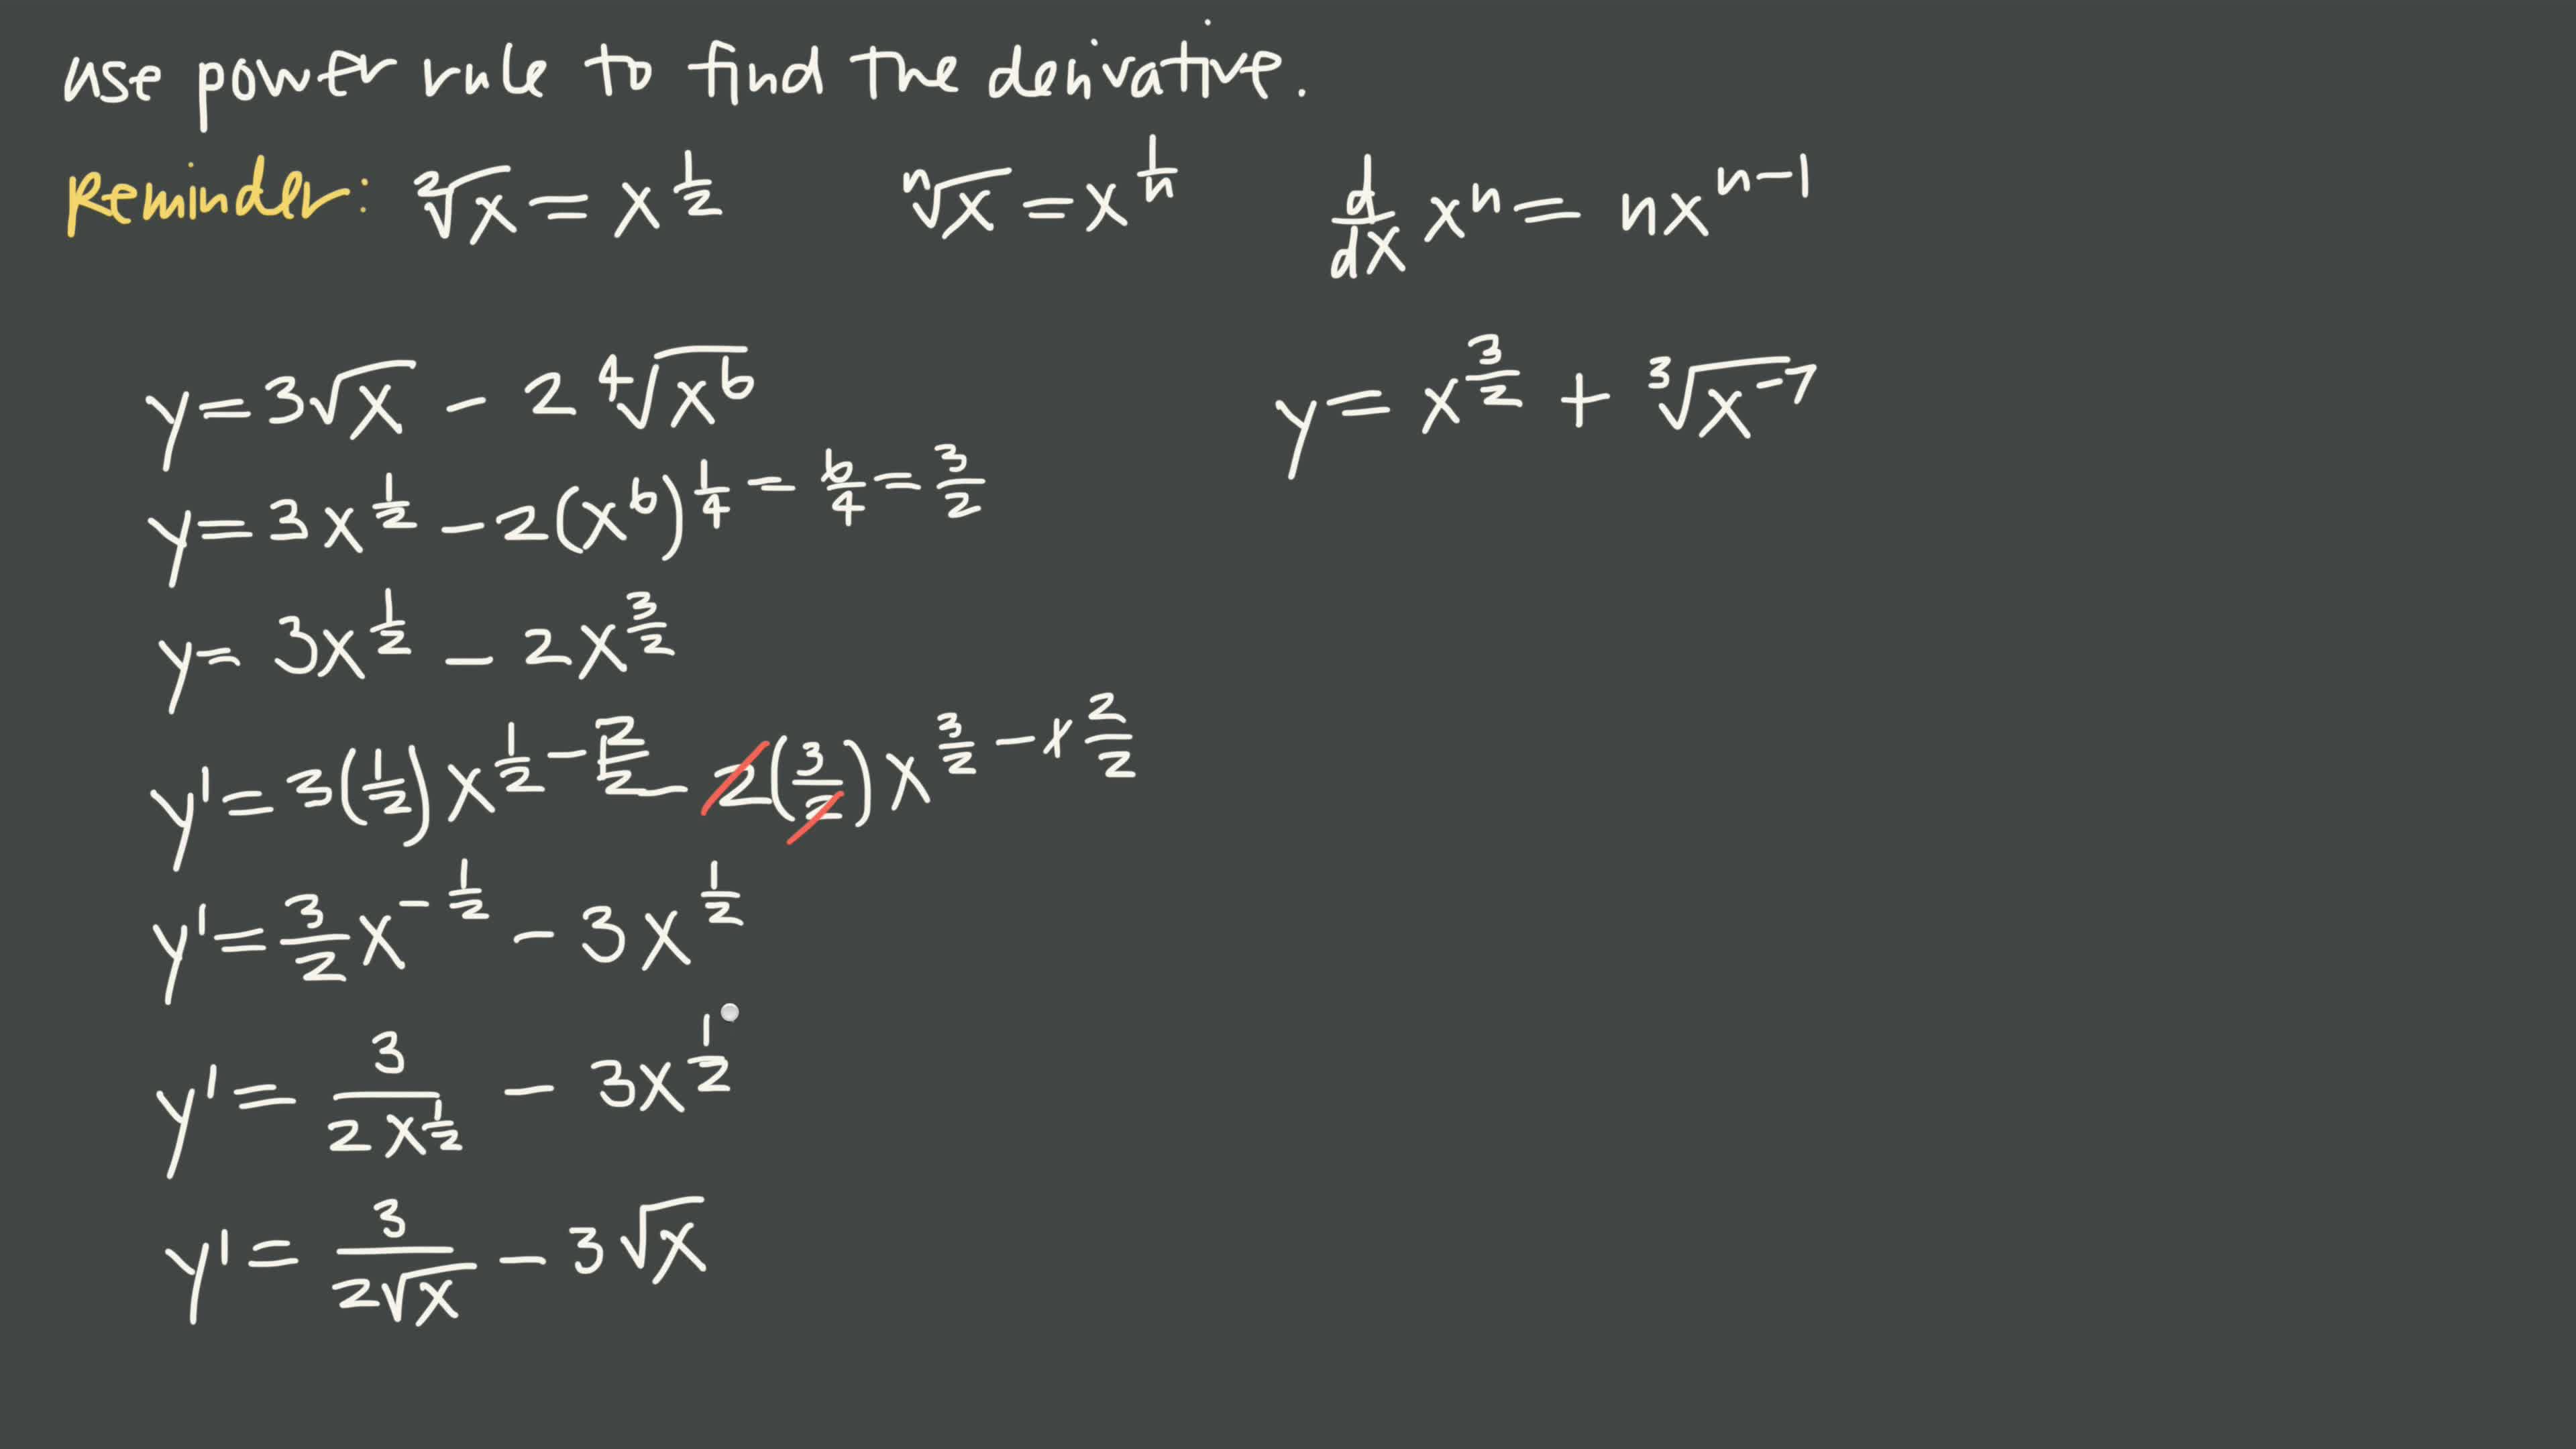 use power rule to find the derivative.
Reminder: ²√x = x^(1/2)    ⁿ√x = x^(1/n)    d/dx xⁿ = nx^(n-1)
y = 3√x - 2 ⁴√(x⁶)    y = x^(3/2) + ³√(x^-7)
y = 3x^(1/2) - 2(x⁶)^(1/4) = 6/4 = 3/2
y = 3x^(1/2) - 2x^(3/2)
y' = 3(1/2)x^(1/2 - 2/2) - 2(3/2)x^(3/2 - 1 2/2)
y' = 3/2 x^(-1/2) - 3x^(1/2)
y' = 3/(2x^(1/2)) - 3x^(1/2)
y' = 3/(2√x) - 3√x